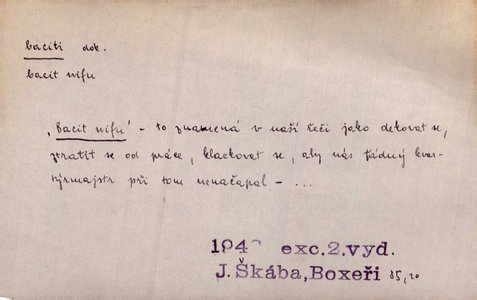 baciti dok.
bacit nifu
„bacit nifu" – to znamená v naší řeči jako dekovat se,
ztratit se od práce, klackovat se, aby nás žádný kvar-
týrmajstr při tom nenačapal – ...
exc.2.vyd.
J. Škába, Boxeři 85,20